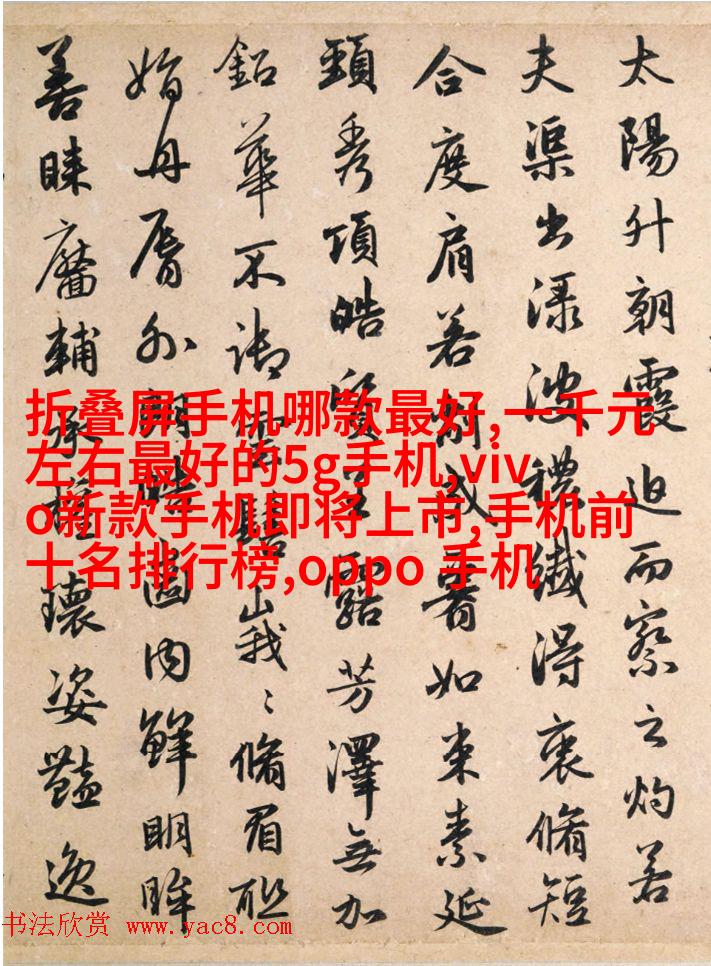 太陽升朝霞迫而察之灼若
夫渠出淥波穠纖得衷脩短
合度肩若削成如束素延
頸秀項皓質呈露芳澤無加
鉛華不御雲髻峩〻脩眉聯
娟丹脣外朗皓齒内鮮明眸
善睞靨輔承權瓌姿豔逸
折叠屏手机哪款最好,一千元
左右最好的5g手机,viv
o新款手机即将上市,手机前
十名排行榜,oppo 手机
书法欣赏 www.yac8.com